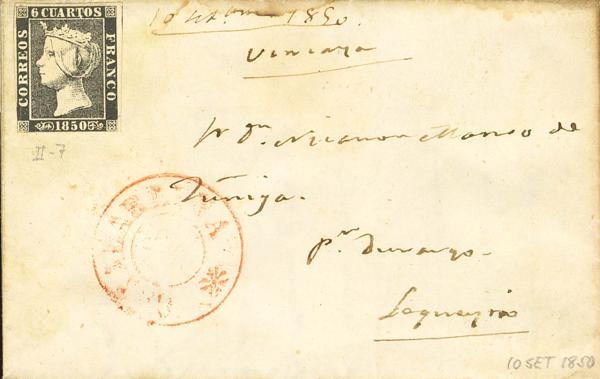 6 CUARTOS
CORREOS
FRANCO
1850
10 1850.
Vizcaya
II-7
Sr Dn. Nicanor Manso de
Zúñiga.
pr. Durango.
Lequeytio
10 SET 1850